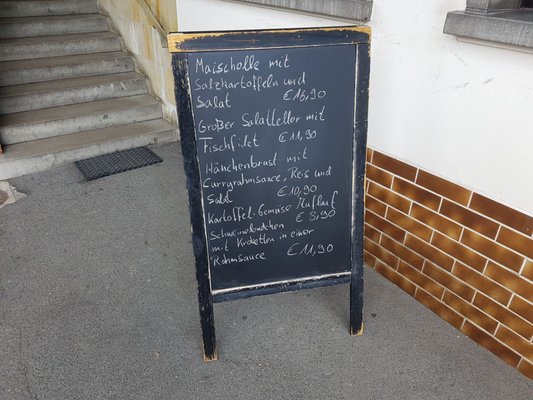 Maischolle mit
Salzkartoffeln und
Salat €16,90
Großer Salatteller mit
Fischfilet €11,90
Hänchenbrust mit
Curryrahmsauce, Reis und
Salat €10,90
Kartoffel-Gemüse Auflauf
€8,90
Schweinelendchen
mit Kroketten in einer
Rahmsauce €11,90